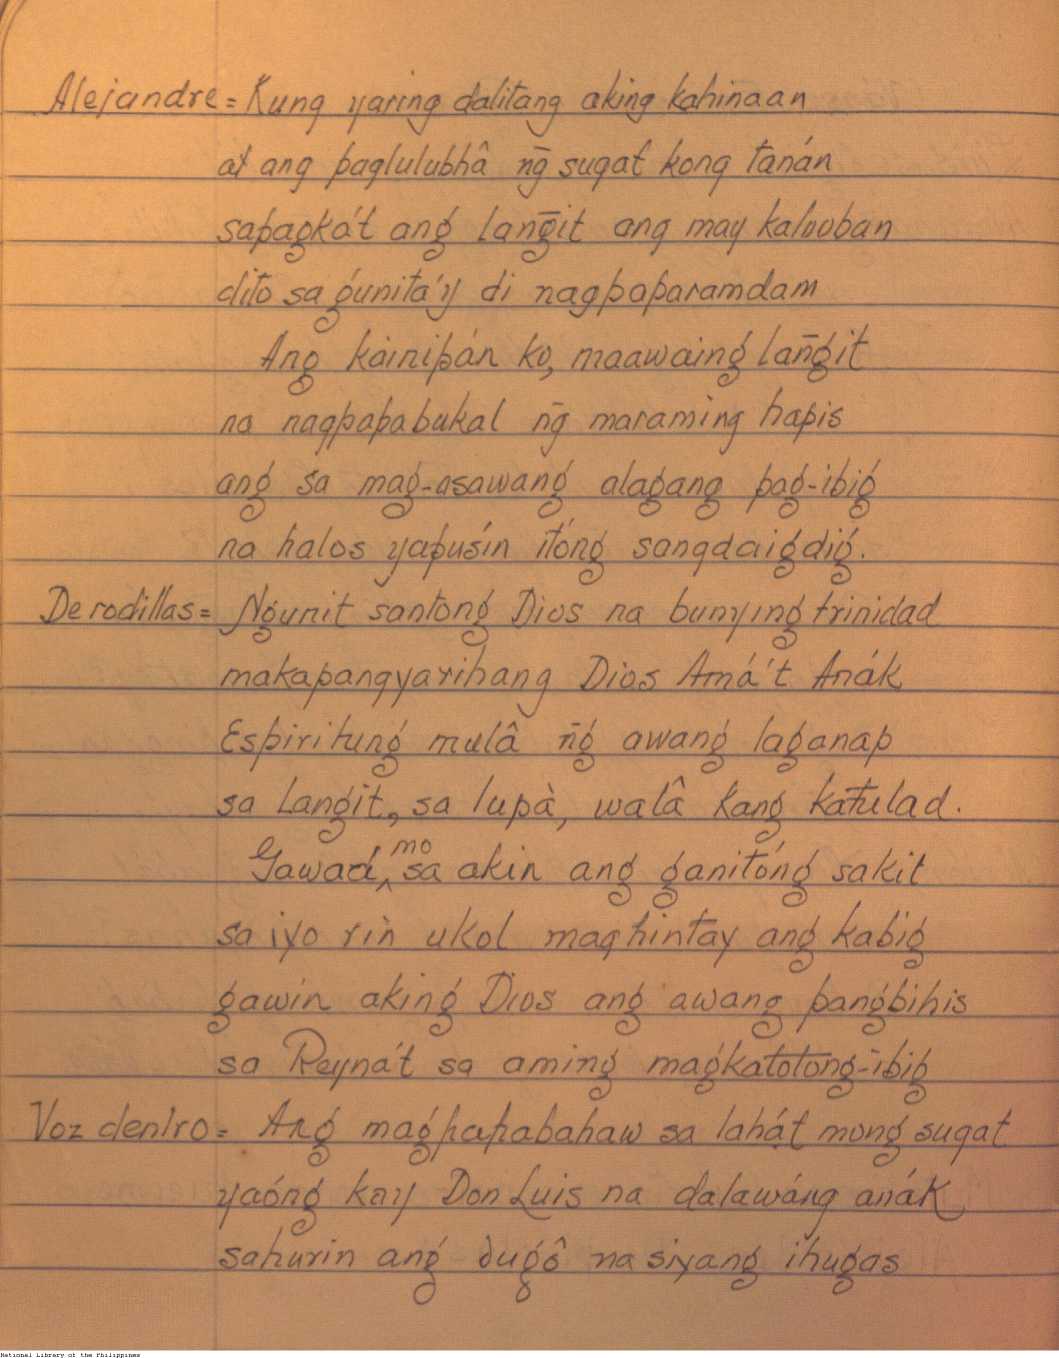 Alejandre = Kung yaring dalitang aking kahinaan
at ang paglulubhâ n̄g sugat kong tanán
sapagká't ang lan̄git ang may kalooban
dito sa gunita'y di nagpaparamdam
Ang káinipán ko, maawaing lan̄git
na nagpapabukal n̄g maraming hapis
ang sa mag-asawang alagang pag-ibig
na halos yapusin itóng sangdaigdig.
De rodillas = Ngunit santong Dios na bunying trinidad
makapangyarihang Dios Amá't Anák
Espiritung mulâ n̄g awang laganap
sa Langit, sa lupà, walâ kang katulad.
Gawad, mo sa akin ang ganitóng sakit
sa iyo rin ukol maghintay ang kabig
gawin aking Dios ang awang pangbihis
sa Reyna't sa aming magkatotong-ibig
Voz dentro = Ang magpapabahaw sa lahát mong sugat
yaóng kay Don Luis na dalawáng anák
sahurin ang dugô na siyang ihugas
National Library of the Philippines